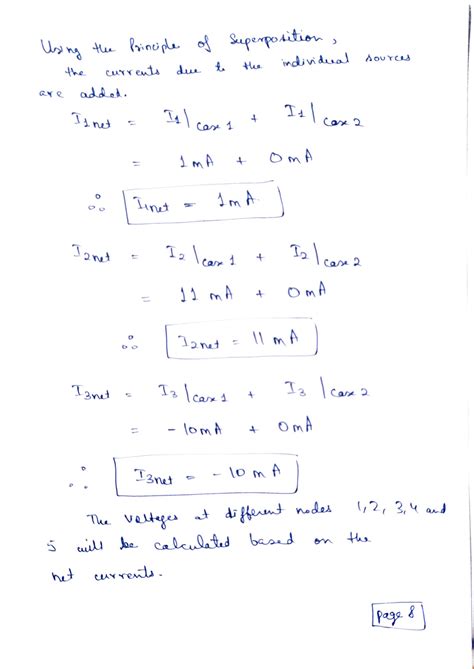 Using the Principle of Superposition,
the currents due to the individual sources
are added.
I1net = I1|case 1 + I1|case 2
= 1mA + 0mA
∴ I1net = 1mA
I2net = I2|case 1 + I2|case 2
= 11 mA + 0mA
∴ I2net = 11 mA
I3net = I3|case 1 + I3|case 2
= -10mA + 0mA
∴ I3net = -10 mA
The voltages at different nodes 1, 2, 3, 4 and
5 will be calculated based on the
net currents.
page 8